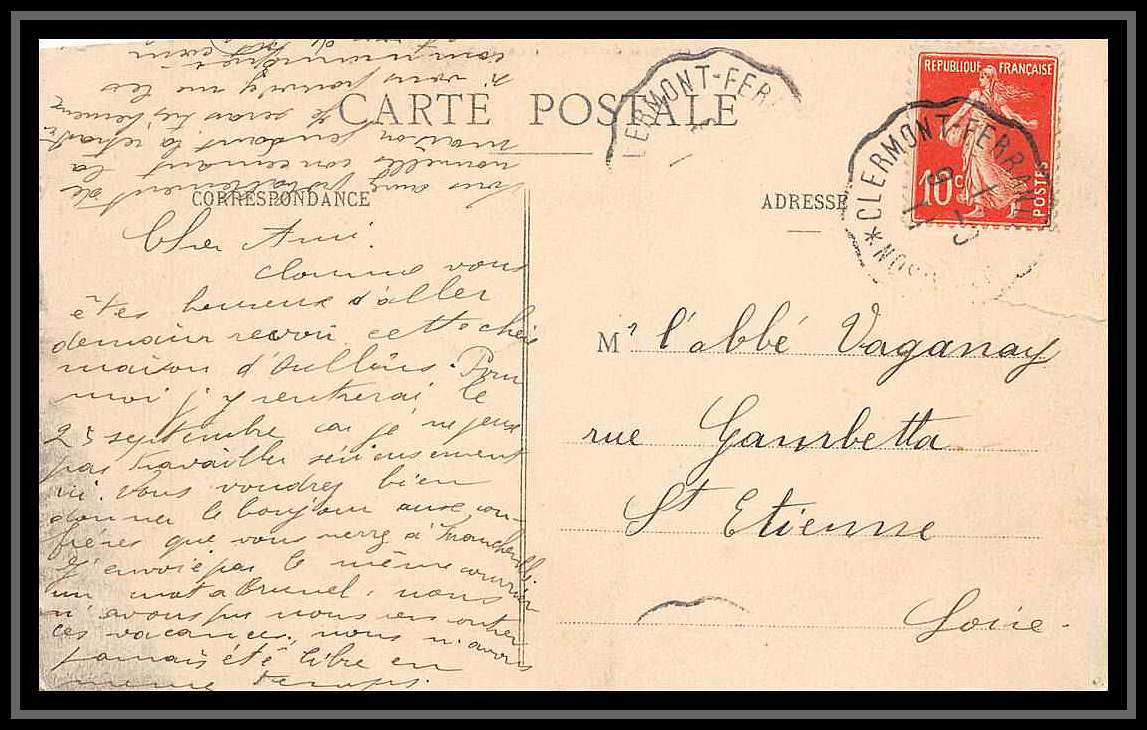 CARTE POSTALE
CORRESPONDANCE
ADRESSE
REPUBLIQUE FRANÇAISE
10c
POSTES
LERMONT-FER
*CLERMONT-FERRAN
Cher Ami.
Comme vous
êtes heureux d'aller
demain revoir cette chère
maison d'oullins. Pour
moi j'y rentrerai le
25 septembre car je ne peux
pas travailler sérieusement
ici. Vous voudrez bien
donner le bonjour aux con-
frères que vous verrez à Francheville
J'envoie par le même courrier
un mot a Brunel, nous
n'avons pu nous rencontrer
ces vacances, nous n'avons
jamais été libre en
même temps.
nouvelles concernant la
maison pendant la retraite
si vous pouvez me les
Mr l'abbé Vaganay
rue Gambetta
St Etienne
Loire.